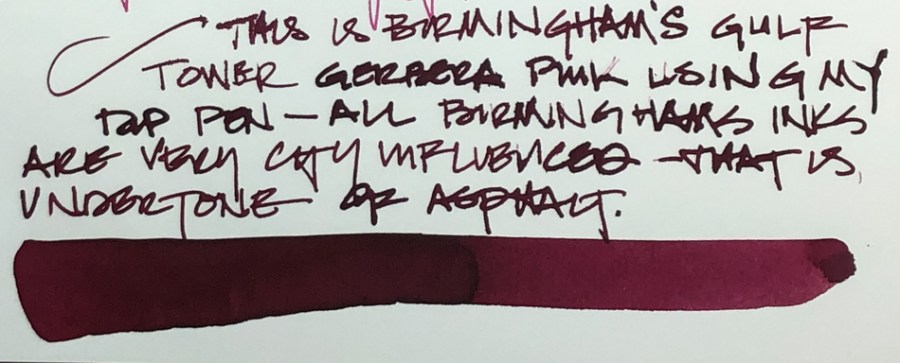 THIS IS BIRMINGHAM'S GULF
TOWER GERBERA PINK USING MY
DIP PEN — ALL BIRMINGHAMS INKS
ARE VERY CITY INFLUENCED — THAT IS,
UNDERTONE OF ASPHALT.